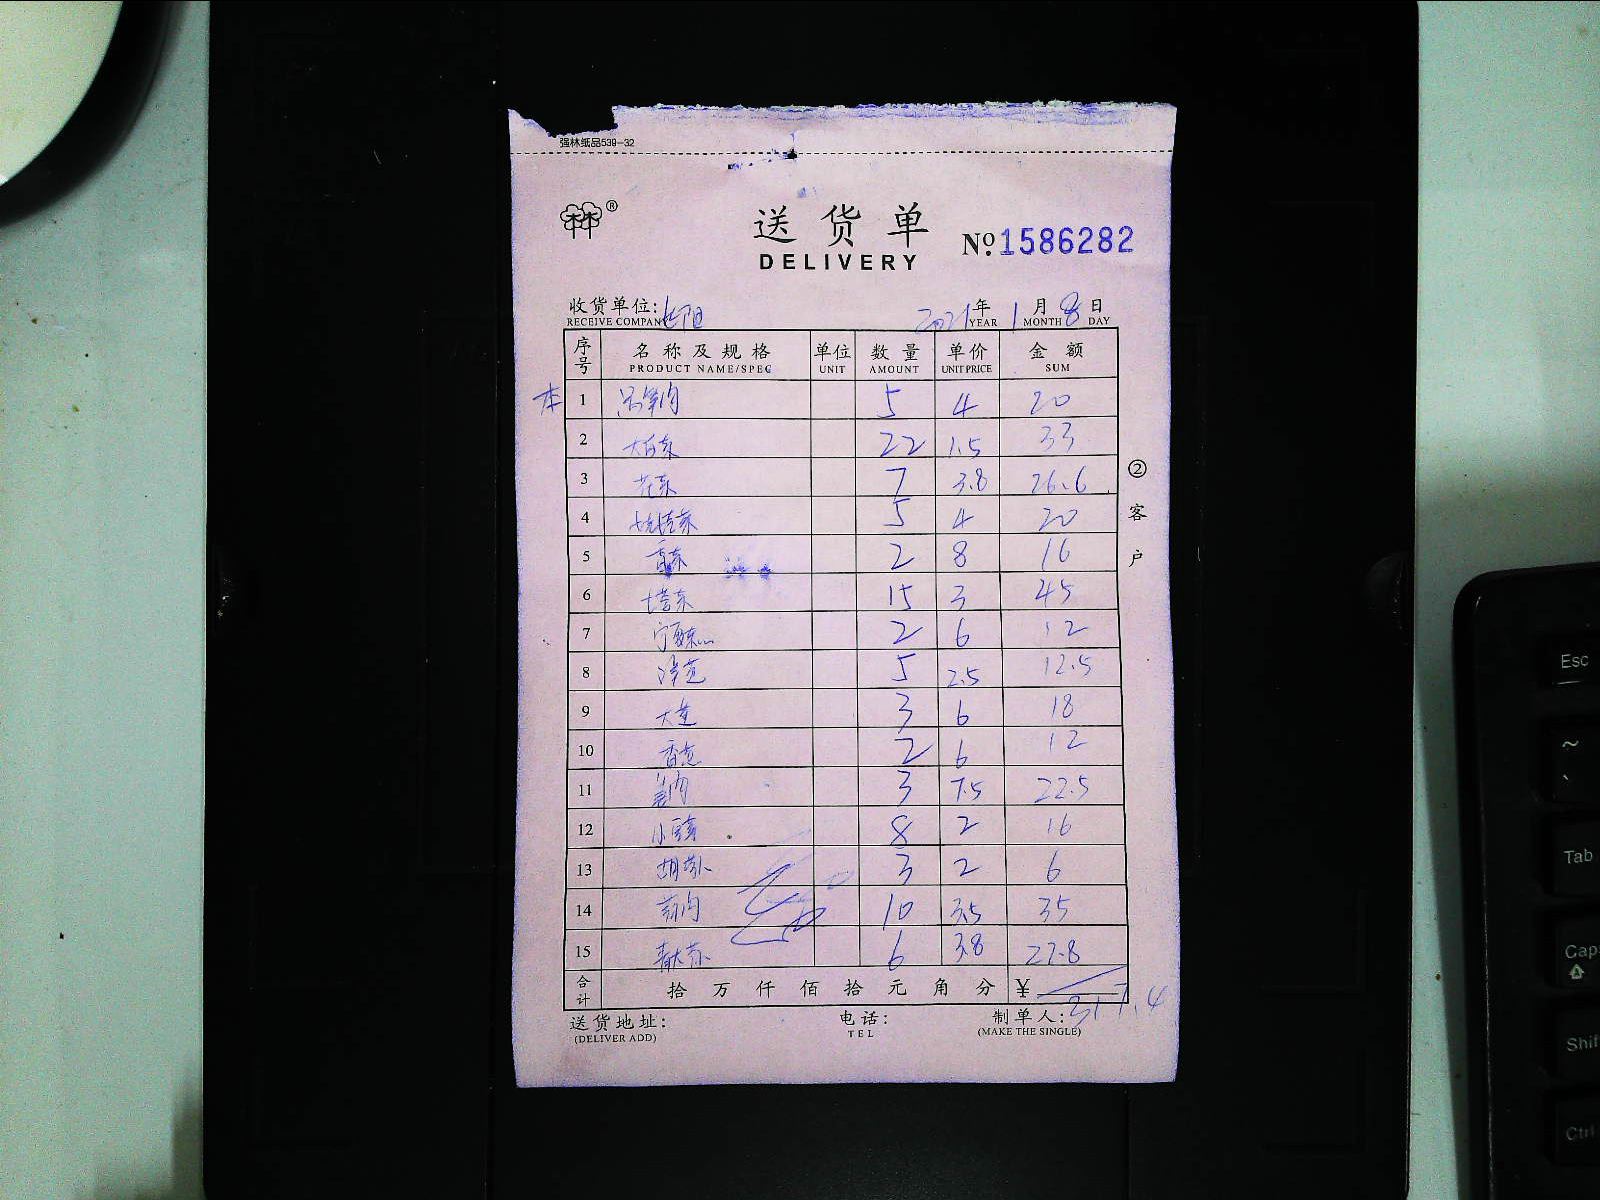 强林纸品539-32
®
送货单
DELIVERY
№.1586282
收货单位: 2021年 1月 8日
RECEIVE COMPAN YEAR MONTH DAY
序号 名称及规格 单位 数量 单价 金额
PRODUCT NAME/SPEC UNIT AMOUNT UNIT PRICE SUM
本 1 5 4 20
2 大白菜 22 1.5 33
3 花菜 7 3.8 26.6
4 5 4 20
5 香菜 2 8 16
6 15 3 45
7 2 6 12
8 洋芫 5 2.5 12.5
9 大芫 3 6 18
10 香芫 2 6 12
11 3 7.5 22.5
12 8 2 16
13 3 2 6
14 10 3.5 35
15 6 3.8 22.8
合计 拾 万 仟 佰 拾 元 角 分 ¥ 317.4
送货地址: 电话: 制单人:
(DELIVER ADD) TEL (MAKE THE SINGLE)
②客户
Esc
~
`
Tab
Caps
Shif
Ctrl